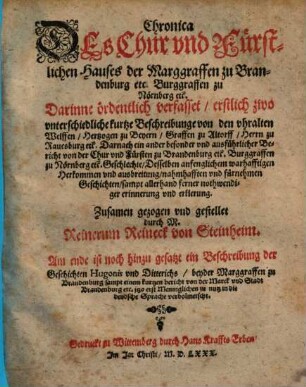 Chronica
DEs Chur vnd Fürst-
lichen Hauses der Marggraffen zu Bran-
denburg etc. Burggraffen zu
Nörnberg etc.
Darinne ördentlich verfasset / erstlich zwo
vnterschiedliche kurtze Beschreibunge von den vhralten
Welffen / Hertzogen zu Beyern / Graffen zu Altorff / Herrn zu
Rauesburg etc. Darnach ein ander besonder vnd ausführlicher Be-
richt von der Chur vnd Fürsten zu Brandenburg etc. Burggraffen
zu Nörnberg etc. Geschlechte / Desselben anfenglichem warhafftigen
Herkommen vnd ausbreitung / nahmhafften vnd fürnehmen
Geschichten / sampt allerhand ferner nothwendi-
ger erinnerung vnd erklerung.
Zusamen gezogen vnd gestellet
durch M.
Reinerum Reineck von Steinheim.
Am ende ist noch hinzu gesatzt ein Beschreibung der
Geschichten Hugonis vnd Ditterichs / beyder Marggraffen zu
Brandenburg sampt einem kurtzen bericht von der Marck vnd Stadt
Brandenburg etc. itzo erst Menniglichen zu nutz in die
deudsche Sprache verdolmetscht.
Gedruckt zu Wittemberg durch Hans Kraffts Erben
Im Jar Christi / M. D. LXXX.